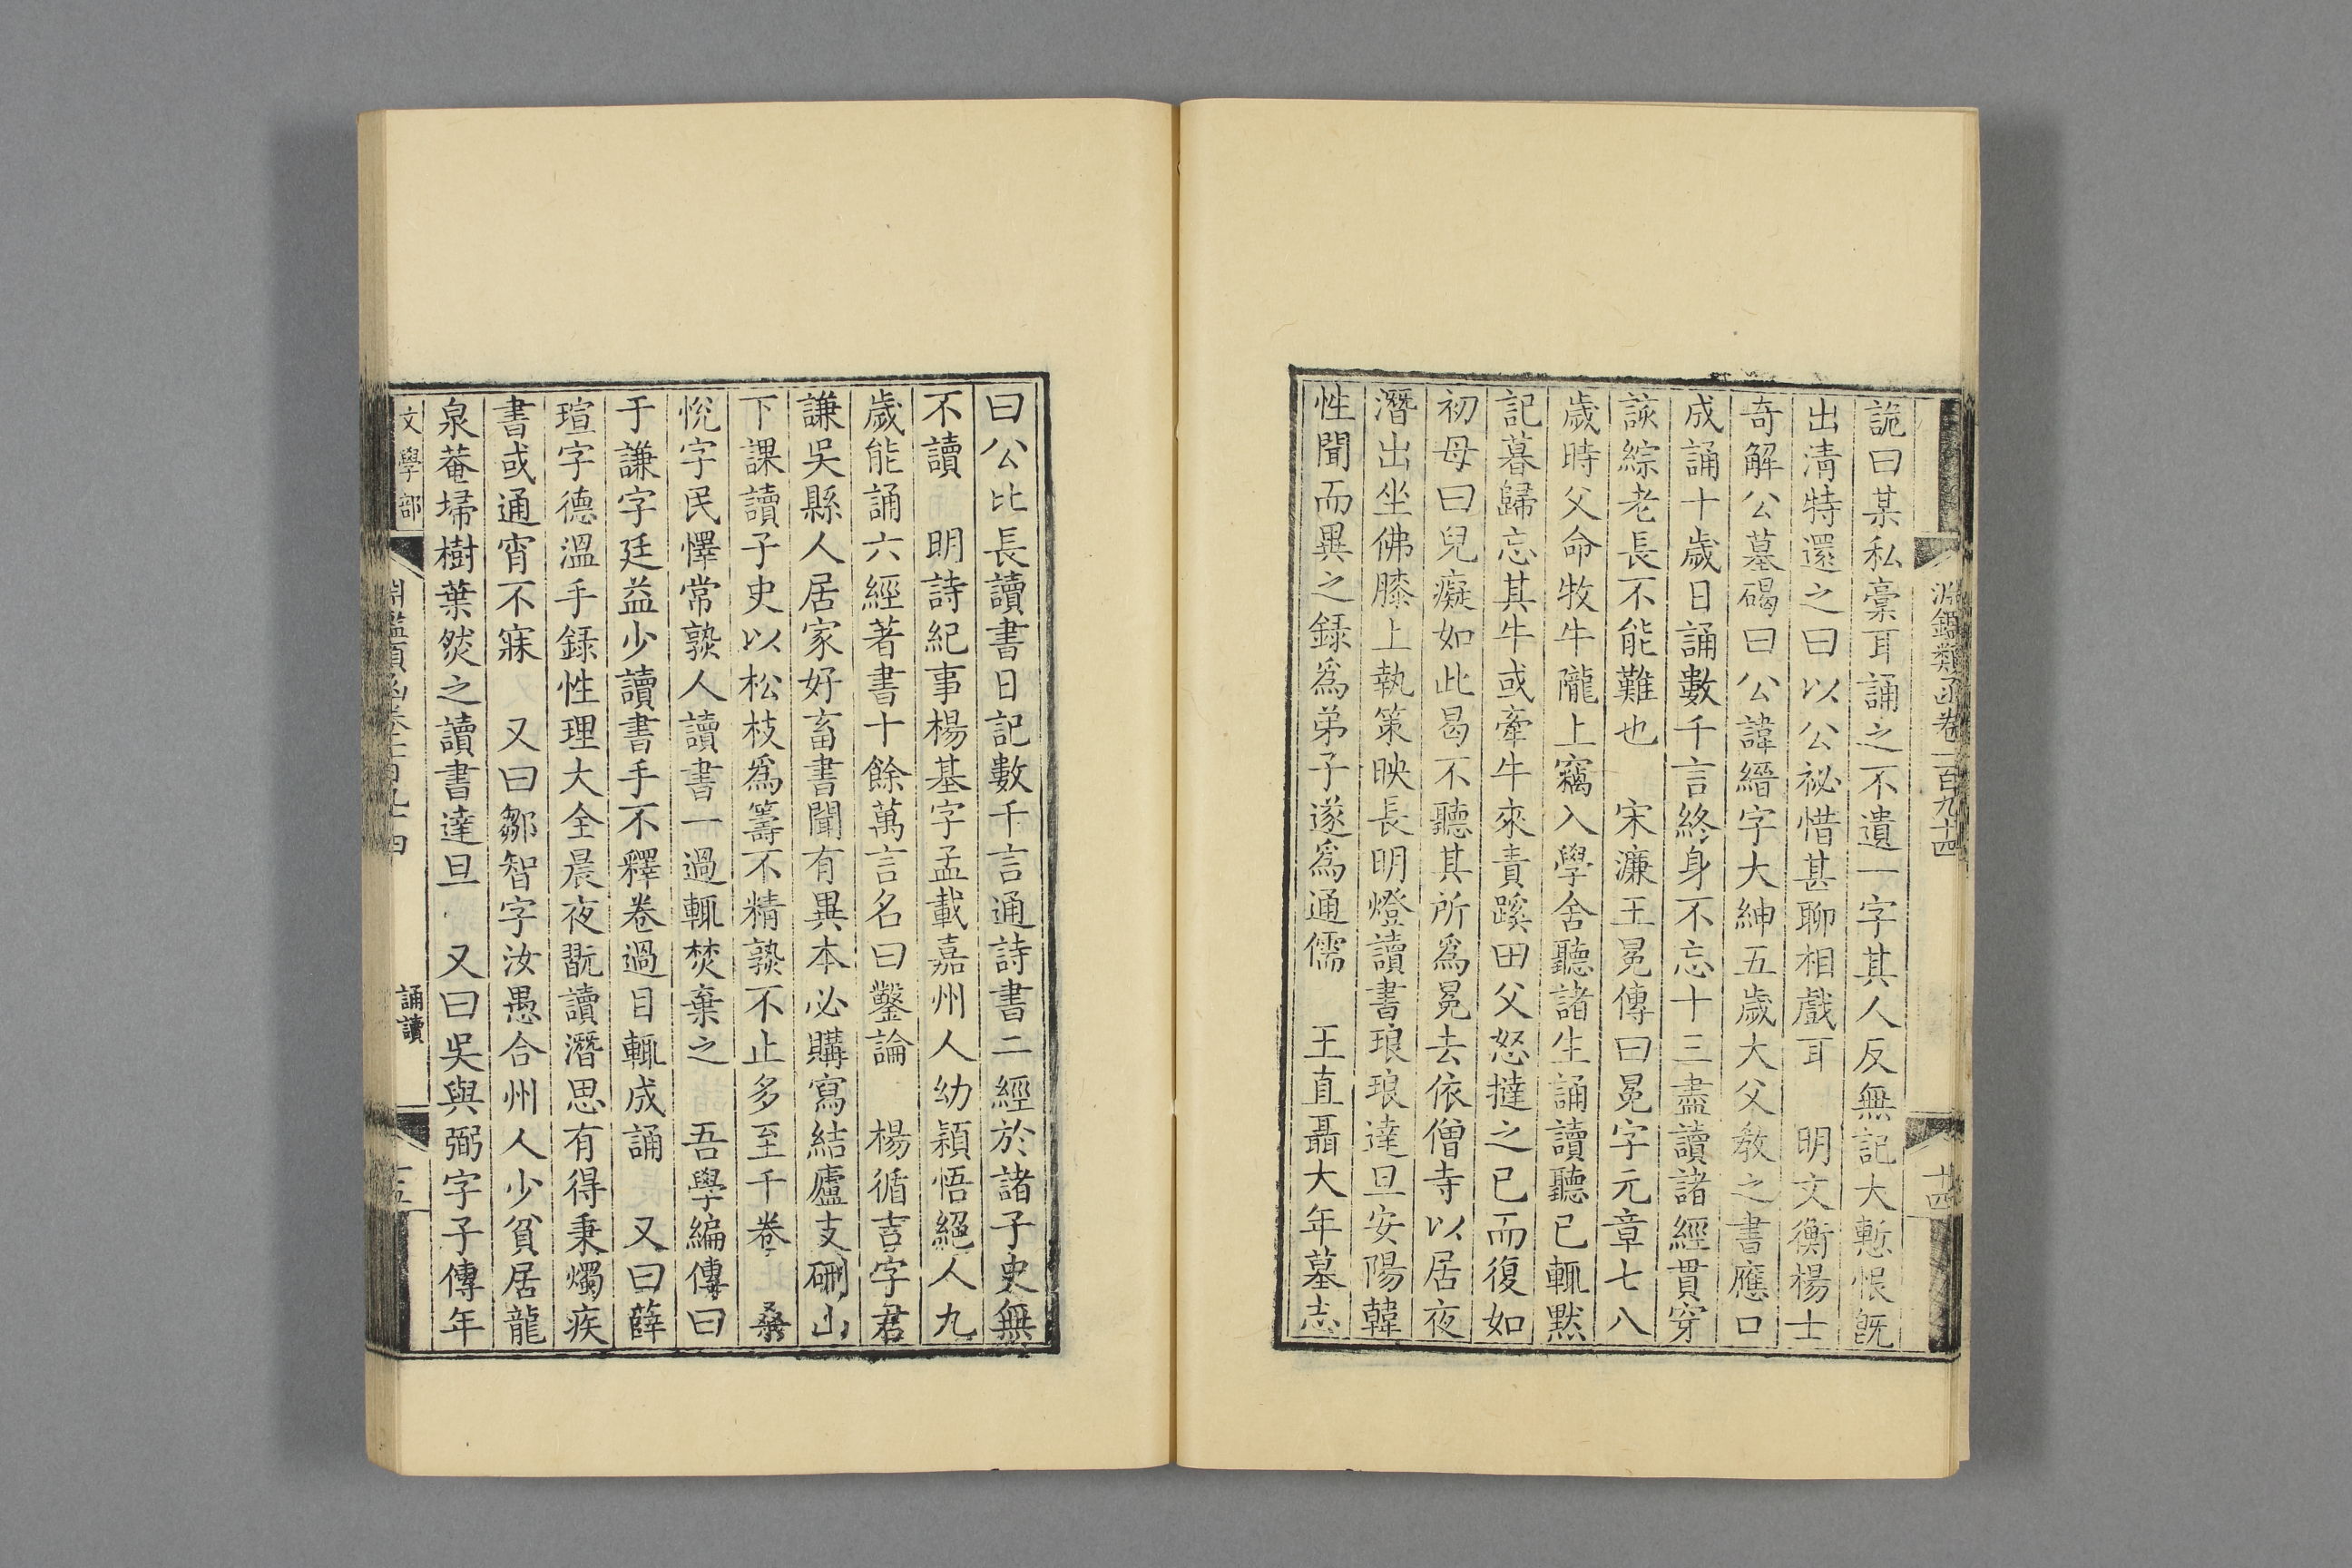 淵鑑類函卷一百九十四
十四
詭曰某私稾耳誦之不遺一字其人反無記大慙恨旣
出清特還之曰以公祕惜甚聊相戲耳　明文衡楊士
奇解公墓碣曰公諱縉字大紳五歲大父教之書應口
成誦十歲日誦數千言終身不忘十三盡讀諸經貫穿
該綜老長不能難也　宋濂王冕傳曰冕字元章七八
歲時父命牧牛隴上竊入學舍聽諸生誦讀聽已輒默
記暮歸忘其牛或牽牛來責蹊田父怒撻之已而復如
初母曰兒癡如此曷不聽其所爲冕去依僧寺以居夜
潛出坐佛膝上執策映長明燈讀書琅琅達旦安陽韓
性聞而異之錄爲弟子遂爲通儒　王直聶大年墓志
曰公比長讀書日記數千言通詩書二經於諸子史無
不讀　明詩紀事楊基字孟載嘉州人幼穎悟絕人九
歲能誦六經著書十餘萬言名曰鑿論　楊循吉字君
謙吳縣人居家好畜書聞有異本必購寫結廬支硎山
下課讀子史以松枝爲籌不精熟不止多至千卷　桑
悅字民懌常熟人讀書一過輒焚棄之　吾學編傳曰
于謙字廷益少讀書手不釋卷過目輒成誦　又曰薛
瑄字德溫手錄性理大全晨夜翫讀潛思有得秉燭疾
書或通宵不寐　又曰鄒智字汝愚合州人少貧居龍
泉菴埽樹葉焚之讀書達旦　又曰吳與弼字子傳年
文學部
淵鑑類函卷一百九十四
誦讀
十五